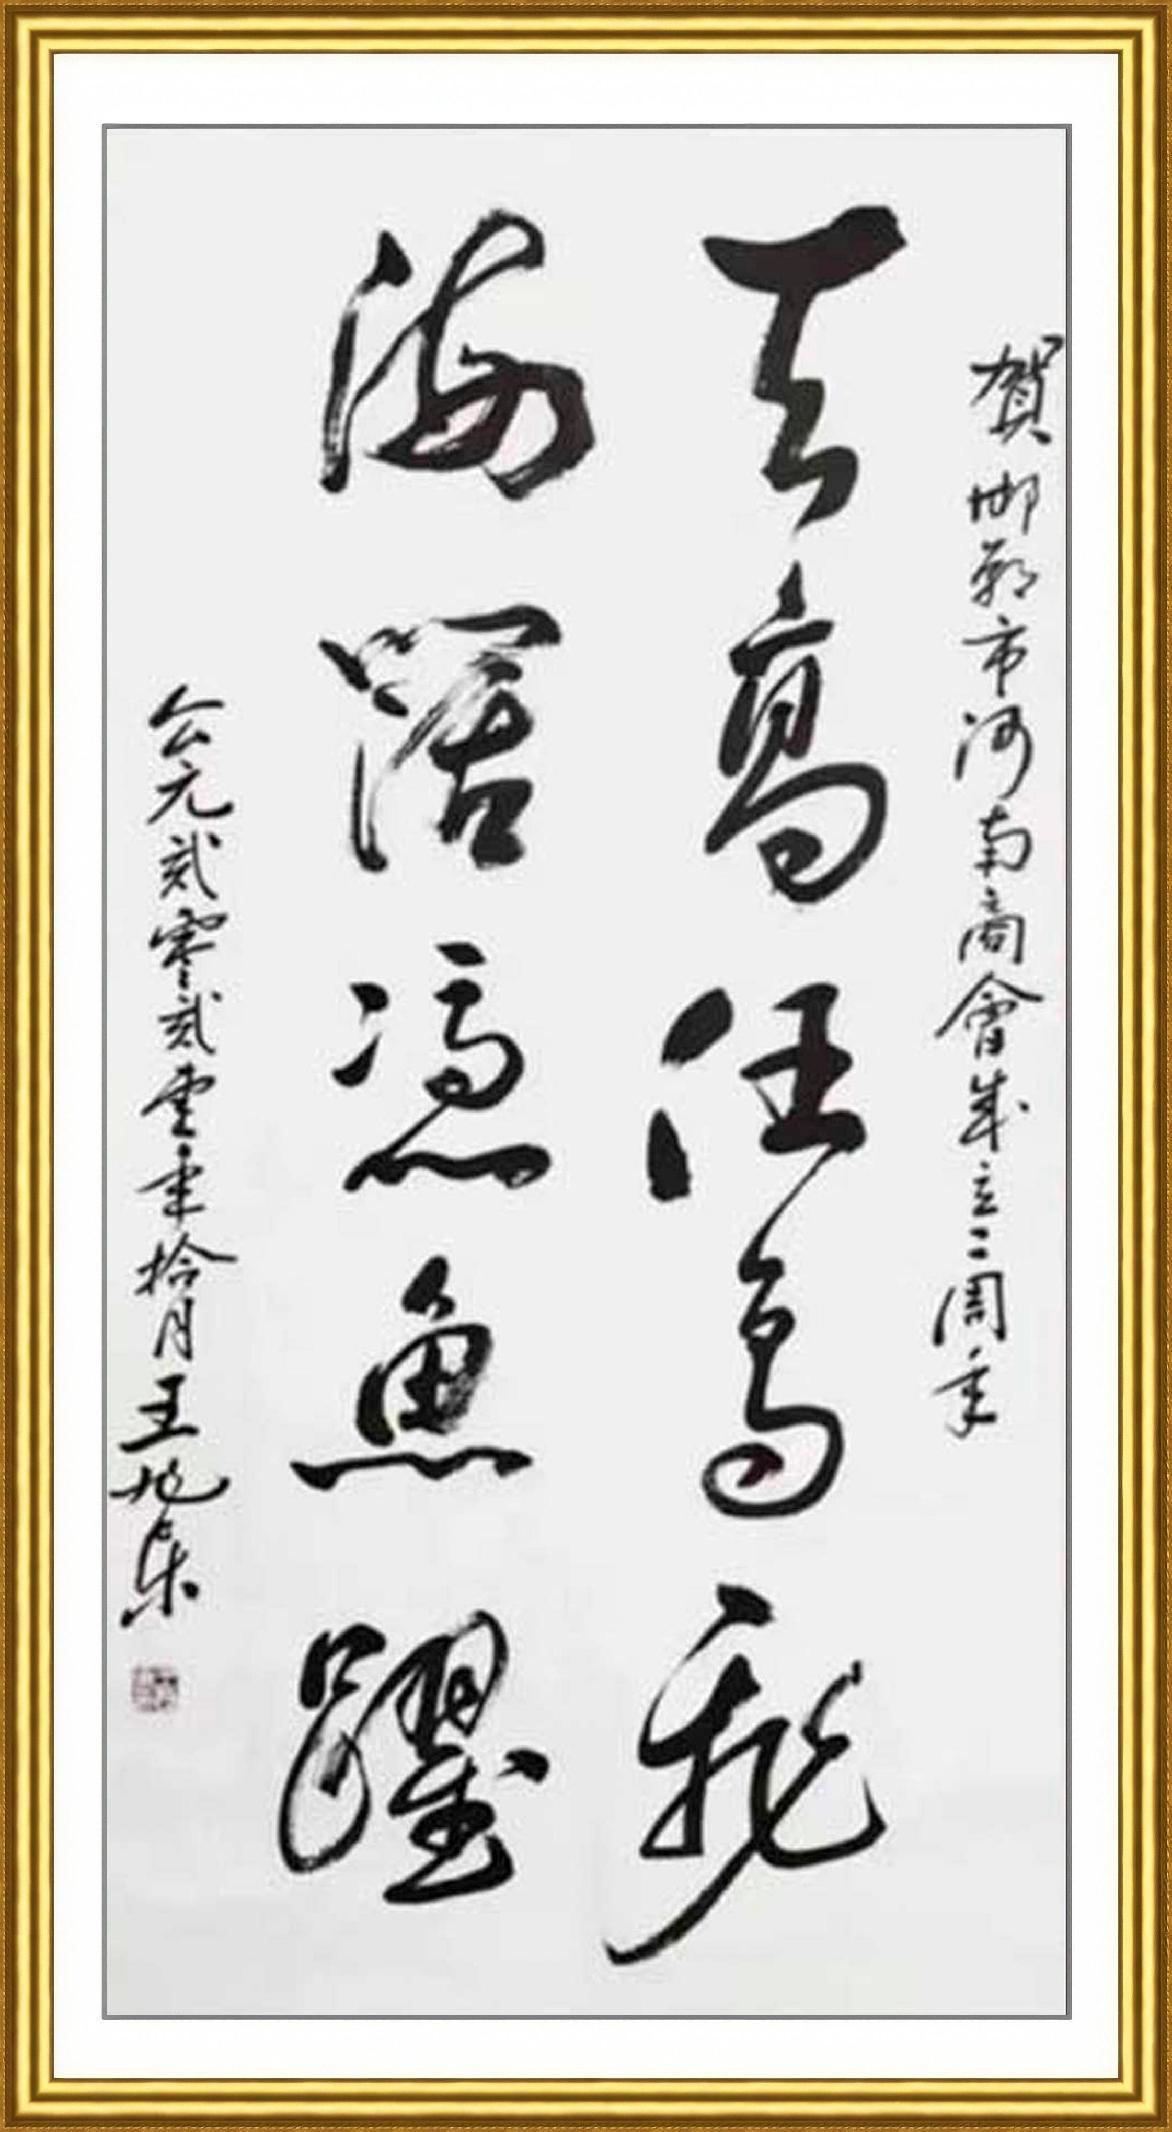 賀邯鄲市河南商會成立二周年
天高任鳥飛
海闊憑魚躍
公元贰零贰零年拾月王兆集